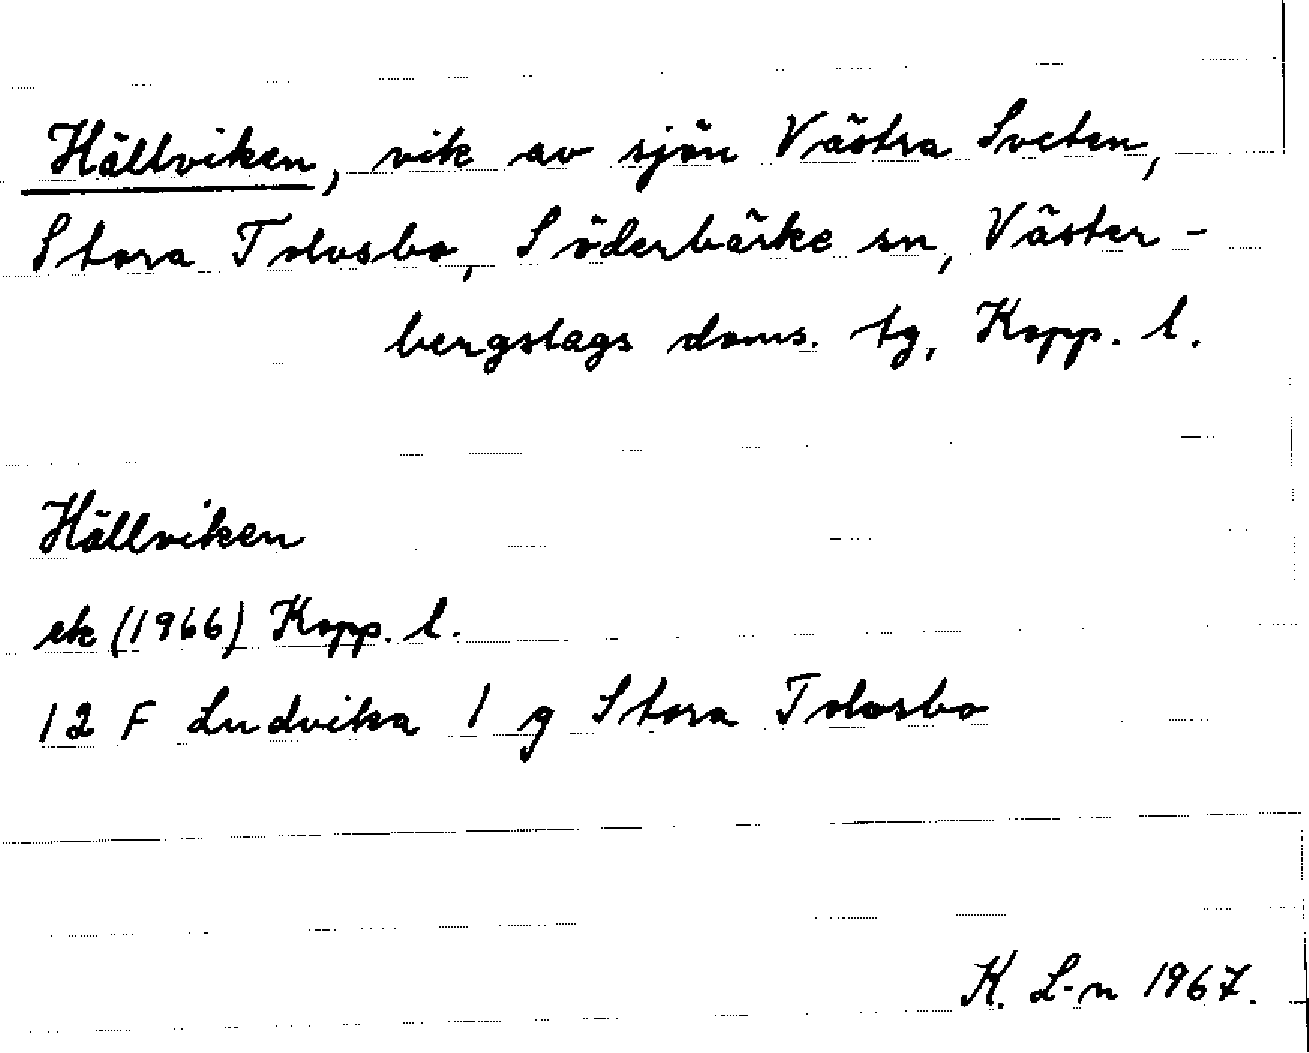 Hällviken, vik av sjön Västra Sveten,
Stora Tolvsbo, Söderbärke sn, Väster-
bergslags doms. tg, Kopp. l.
Hällviken
ek (1966) Kopp. l.
12 F Ludvika 1 g Stora Tolvsbo
K. L-n 1967.